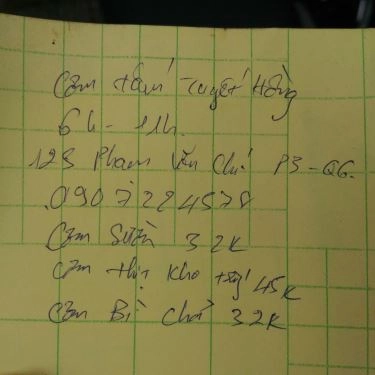 Cơm tấm Tuyết Hồng
6h - 11h.
123 Phạm Văn Chí P3 - Q6.
0907224578
Cơm Sườn 32K
Cơm thịt kho trứng 45K
Cơm Bì Chả 32K